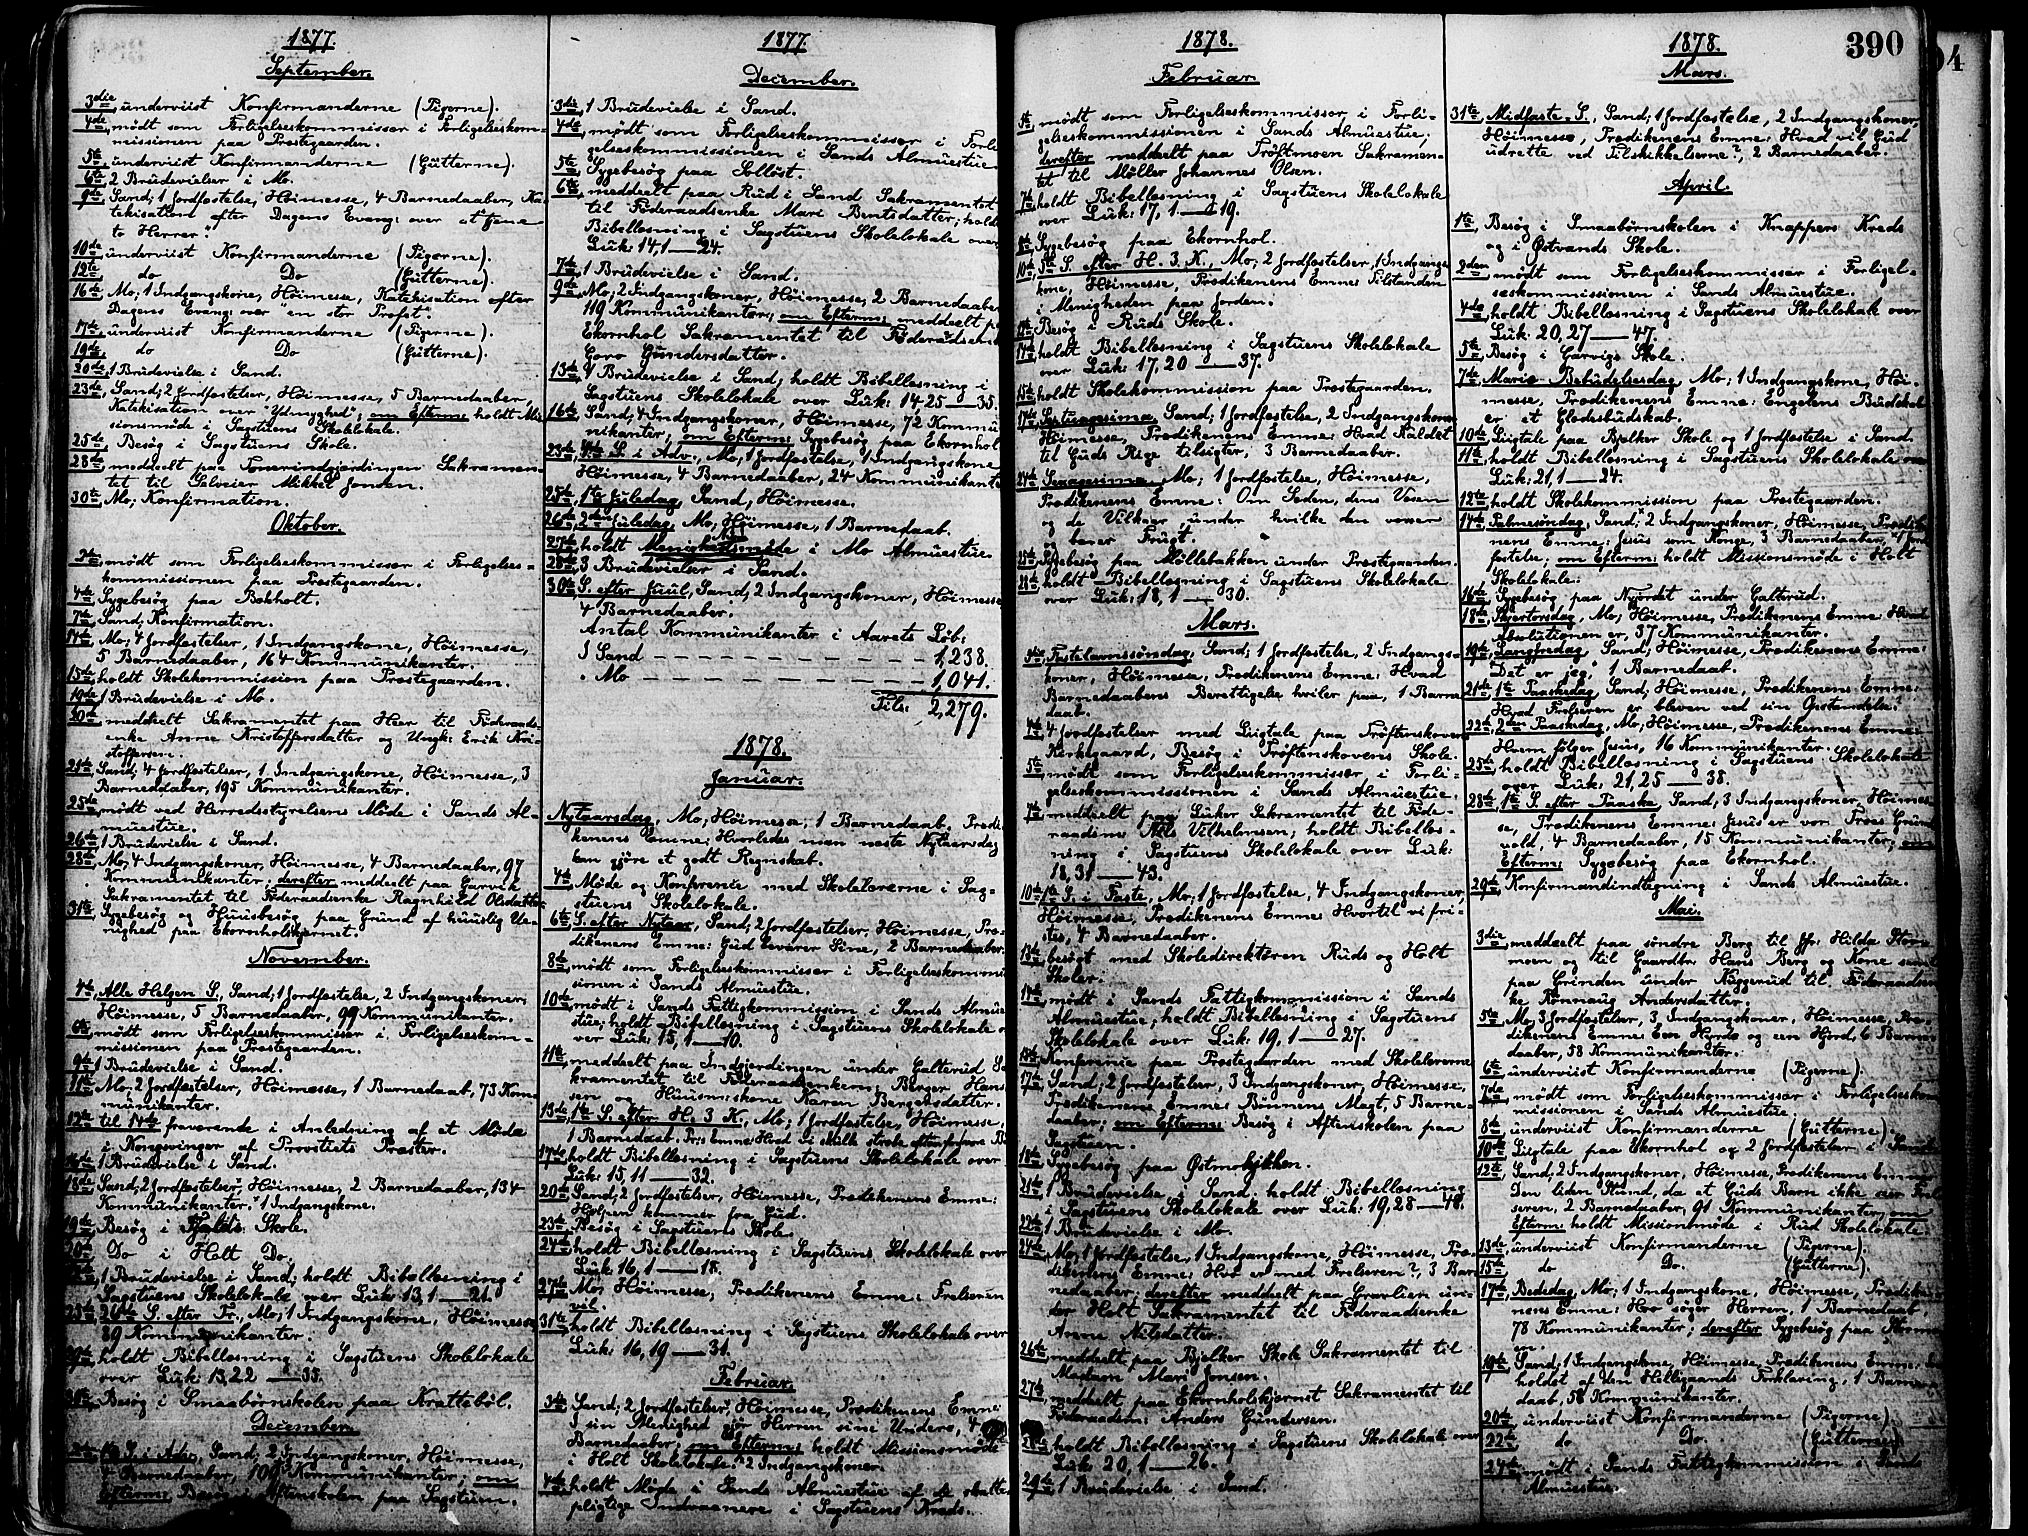 1877.
September.
3die underviist Konfirmanderne (Pigerne).
4de mödt som Forligelseskommissær i Forligelseskom-
missionen paa Præstegaarden.
5te underviist Konfirmanderne (Gutterne).
6te 2 Brudevielser i Mo.
9de Sand; 1 Jordfæstelse, Höimesse, 4 Barnedaaber, Ka-
tekisation efter Dagens Evang: over "at tjene
to Herrer."
10de underviist Konfirmanderne (Pigerne).
12te do Do (Gutterne).
16de Mo; 1 Indgangskone, Höimesse, Katekisation efter
Dagens Evang: over "en stor Profet".
17de underviist Konfirmanderne (Pigerne).
19de do Do (Gutterne).
20de 1 Brudevielse i Sand.
23de Sand; 2 Jordfæstelser, Höimesse, 5 Barnedaaber,
Katekisation over "Ydmyghed"; om Efterm: holdt Mis-
sionsmöde i Sagstuens Skolelokale.
25de Besög i Sagstuens Skole.
28de meddeelt paa Tonerindgjærdingen Sakramen-
tet til Sælveier Mikkel Jonsen.
30te Mo; Konfirmation.
Oktober.
2den mödt som Forligelseskommissær i Forligelses-
kommissionen paa Præstegaarden.
4de Sygebesög paa Bokholt.
7de Sand; Konfirmation.
14de Mo; 4 Jordfæstelser, 1 Indgangskone, Höimesse,
5 Barnedaaber, 164 Kommunikanter.
15de holdt Skolekommission paa Præstegaarden.
19de 1 Brudevielse i Mo.
20de meddeelt Sakramentet paa Heer til Föderaads-
enke Anne Kristoffersdatter og Ungk: Erik Kri-
stoffersen.
21de Sand; 4 Jordfæstelser, 1 Indgangskone, Höimesse, 3
Barnedaaber, 195 Kommunikanter.
25de mödt ved Herredsstyrelsens Möde i Sands Al-
muestue.
26de 1 Brudevielse i Sand.
28de Mo, 4 Indgangskoner, Höimesse, 4 Barnedaaber, 97
Kommunikanter; derefter meddeelt paa Garvik
Sakramentet til Föderaadsenke Ragnhild Olsdatter
31te Sygebesög og Huusbesög paa Grund af huuslig Ue-
nighed paa Ekornholskjernet.
November.
4de Alle Helgen S., Sand; 1 Jordfæstelse, 2 Indgangskoner,
Höimesse, 5 Barnedaaber, 99 Kommunikanter.
6te mödt som Forligelseskommissær i Forligelseskom-
missionen paa Præstegaarden.
9de 1 Brudevielse i Sand.
11te Mo; 2 Jordfæstelser, Höimesse, 1 Barnedaab, 73 Kom-
munikanter.
12te til 14de fraværende i Anledning af et Möde
i Kongsvinger af Provstiets Præster.
16de 1 Brudevielse i Sand.
18de Sand; 2 Jordfæstelser, Höimesse, 2 Barnedaaber, 134
Kommunikanter. 1 Indgangskone.
19de Besög i Skole.
20de Do i Holt Do.
1 Brudevielse i Sand; holdt Bibellæsning i
Sagstuens Skolelokale over Luk: 13, 1 — 21.
25de 26de S. efter Tr., Mo; 1 Indgangskone, Höimesse,
89 Kommunikanter.
29de holdt Bibellæsning i Sagstuens Skolelokale
over Luk: 13, 22 — 35.
30te Besög i Smaabörnskolen paa Krattebøl.
December.
2den 1ste S. i Adv., Sand, 2 Indgangskoner, Höimesse,
4 Barnedaaber, 100 Kommunikanter; om
Efterm: Besög i Aftenskolen paa Sagstuen.
1877.
December.
3die 1 Brudevielse i Sand.
4de mödt som Forligelseskommissær i Forli-
gelseskommissionen i Sands Almuestue.
5te Sygebesög paa Solløst.
6te meddeelt paa Rud i Sand Sakramentet
til Föderaadsenke Mari Bentsdatter; holdt
Bibellæsning i Sagstuens Skolelokale over
Luk: 14, 1 — 24.
7de 1 Brudevielse i Sand.
9de Mo; 2 Indgangskoner, Höimesse, 2 Barnedaaber
119 Kommunikanter; om Efterm: meddeelt paa
Ekornhol Sakramentet til Föderaadsenke
Goro Gundersdatter.
13de 4 Brudevielse i Sand; holdt Bibellæsning i
Sagstuens Skolelokale over Luk: 14, 25 — 35.
16de Sand, 4 Indgangskoner, Höimesse, 72 Kommu-
nikanter; om Efterm: Sygebesög paa Ekornhol
23de 4de S. i Adv., Mo, 1 Jordfæstelse, 1 Indgangskone
Höimesse, 4 Barnedaaber, 24 Kommunikanter
25de 1ste Juledag, Sand, Höimesse.
26de 2den Juledag, Mo, Höimesse, 1 Barnedaab.
27de holdt Menighedsmöde i Mo Almuestue.
28de 3 Brudevielser i Sand.
30te S. efter Juul, Sand, 2 Indgangskoner, Höimesse
4 Barnedaaber.
Antal Kommunikanter i Aarets Löb:
I Sand — — — — — — — — — 1,238.
" Mo — — — — — — — — — 1,041.
Tils: 2,279.
1878.
Januar.
Nytaarsdag, Mo, Höimesse, 1 Barnedaab, Prædi-
kenens Emne: Hvorledes man næste Nytaarsdag
kan gjöre et godt Regnskab.
4de Möde og Konferense med Skolelærerne i Sag-
stuens Skolelokale.
6te S. efter Nytaar, Sand, 2 Jordfæstelser, Höimesse, Præ-
dikenens Emne: Gud bevarer Sine, 2 Barnedaaber.
8de mödt som Forligelseskommissær i Forligelseskommis-
sionen i Sands Almuestue.
10de mödt i Sands Fattigkommission i Sands Almue-
stue; holdt Bibellæsning i Sagstuens Skolelokale o-
ver Luk: 15, 1 — 10.
11te meddeelt paa Indgjerdingen under Galterud Sa-
kramentet til Föderaadsenkem: Berger Han-
sen og Huusmiskone Karen Bergersdatter.
13de 1ste S. efter H. 3 K., Mo; 1 Jordfæstelse, Höimesse,
1 Barnedaab.
17de holdt Bibellæsning i Sagstuens Skolelokale over
Luk: 15, 11 — 32.
20de Sand, 2 Jordfæstelser, Höimesse, Prædikenens Emne:
Hjælpen kommer fra Gud.
23de Besög i Sagstuens Skole.
24de holdt Bibellæsning i Sagstuens Skolelokale over
Luk: 16, 1 — 18.
27de Mo; Höimesse, Prædikenens Emne: Frelseren
vil.
31te holdt Bibellæsning i Sagstuens Skolelokale over
Luk: 16, 19 — 31.
Februar.
3die Sand; 2 Jordfæstelser, Höimesse, Prædikenens Emne:
I sin Menighed gjör Herren sine Undere, 4
Barnedaaber; om Efterm: holdt Missionsmöde
i Holt Skolelokale. 2 Indgangskoner.
4de holdt Möde i Sands Almuestue af de skatte-
pligtige Indvaanere i Sagstuens Kreds.
1878.
Februar.
5te mödt som Forligelseskommissær i Forli-
gelseskommissionen i Sands Almuestue,
derefter meddeelt paa Tröftmoen Sakramen-
tet til Møller Johannes Olsen.
7de holdt Bibellæsning i Sagstuens Skolelokale
over Luk: 17, 1 — 19.
8de Sygebesög paa Ekornhol.
10de 5te S. efter H. 3. K., Mo; 2 Jordfæstelser, 1 Indgangs-
kone, Höimesse, Prædikenens Emne: Tilstanden
i Menigheden paa Jorden.
Besög i Ruds Skole.
14de holdt Bibellæsning i Sagstuens Skolelokale
over Luk: 17, 20 — 37.
15de holdt Skolekommission paa Præstegaarden.
17de Septuagesima, Sand; 1 Jordfæstelse, 2 Indgangskoner
Höimesse, Prædikenens Emne: Hvad Kaldet
til Guds Rige tilsigter, 3 Barnedaaber.
24de Sexagesima, Mo; 1 Jordfæstelse, Höimesse,
Prædikenens Emne: Om Sæden, dens Væsen
og de Vilkaar, under hvilke den voxer
og bærer Frugt.
25de Sygebesög paa Møllebakken under Præstegaarden.
28de holdt Bibellæsning i Sagstuens Skolelokale
over Luk: 18, 1 — 30.
Mars.
3die Fastelavnssöndag, Sand; 1 Jordfæstelse, 2 Indgangs-
koner, Höimesse, Prædikenens Emne: Hvad
Barnedaabens Berettigelse hviler paa, 1 Barne-
daab.
4de 4 Jordfæstelser med Liigtale paa Tröftenskovens
Kirkegaard, Besög i Tröftenskovens Skole.
5te mödt som Forligelseskommissær i Forli-
gelseskommissionen i Sands Almuestue.
7de meddeelt paa Luker Sakramentet til Föde-
raadsm: Nils Vilhelmsen; holdt Bibellæs-
ning i Sagstuens Skolelokale over Luk:
18, 31 — 43.
10de 1ste S. i Faste, Mo; 1 Jordfæstelse, 4 Indgangskoner,
Höimesse, Prædikenens Emne: Hvortil vi fri-
stes, 4 Barnedaaber.
13de besögt med Skoledirektören Ruds og Holt
Skoler.
14de mödt i Sands Fattigkommission i Sands
Almuestue; holdt Bibellæsning i Sagstuens
Skolelokale over Luk: 19, 1 — 27.
Konferense paa Præstegaarden med Skolelærerne
17de Sand; 2 Jordfæstelser, 3 Indgangskoner, Höimesse,
Prædikenens Emne: Bönnens Magt, 5 Barne-
daaber; om Efterm: Besög i Aftenskolen paa
Sagstuen.
18de Sygebesög paa Østmobækken.
21de 1 Brudevielse i Sand; holdt Bibellæsning
i Sagstuens Skolelokale over Luk: 19, 28 — 48.
22de 1 Brudevielse i Mo.
24de Mo, 1 Jordfæstelse, 1 Indgangskone, Höimesse, Præ-
dikenens Emne: Hvo er med Frelseren?, 3 Bar-
nedaaber; derefter meddeelt paa Gravlien un-
der Holt Sakramentet til Föderaadsenke
Anne Nilsdatter.
26de meddeelt paa Bjelker Skole Sakramentet til
Madam Mari Jonsen.
27de meddeelt paa Ekornholskjernet Sakramentet til
Föderaadsm: Anders Gundersen.
28de holdt Bibellæsning i Sagstuens Skolelokale over
Luk: 20, 1 — 26.
29de 1 Brudevielse i Sand.
1878.
390
Mars.
31te Midfaste S., Sand; 1 Jordfæstelse, 2 Indgangskoner,
Höimesse, Prædikenens Emne: Hvad vil Gud
udrette ved Tilskikkelserne?, 2 Barnedaaber.
April.
1ste Besög i Smaabörnskolen i Knappers Kreds
og i Østvands Skole.
2den mödt som Forligelseskommissær i Forligel-
seskommissionen i Sands Almuestue.
4de holdt Bibellæsning i Sagstuens Skolelokale over
Luk: 20, 27 — 47.
5te Besög i Garvigs Skole.
7de Mariæ Bebudelsesdag, Mo; 1 Indgangskone, Höi-
messe, Prædikenens Emne: Engelens Budskab
er et Glædesbudskab.
10de Liigtale paa Bjelker Skole og 1 Jordfæstelse i Sand.
11te holdt Bibellæsning i Sagstuens Skolelokale over
Luk: 21, 1 — 24.
12te holdt Skolekommission paa Præstegaarden.
14de Palmesöndag, Sand, 2 Indgangskoner, Höimesse, Prædike-
nens Emne: Jesus som Konge, 3 Barnedaaber, 4 Jord-
fæstelse; om Efterm: holdt Missionsmöde i Holt
Skolelokale.
16de Sygebesög paa Nyjordet under Galterud.
18de Skjærtorsdag, Mo, Höimesse, Prædikenens Emne: Hvad
Absolutionen er, 37 Kommunikanter.
19de Langfredag, Sand, Höimesse, Prædikenens Emne:
"Det er jeg", 1 Barnedaab.
21de 1ste Paaskedag, Sand, Höimesse, Prædikenens Emne:
Hvad Frelseren er bleven ved sin Opstandelse.
22de 2den Paaskedag, Mo, Höimesse, Prædikenens Emne:
Hvem fölger Jesus, 16 Kommunikanter.
25de holdt Bibellæsning i Sagstuens Skolelokale
over Luk: 21, 25 — 38.
28de 1ste S. efter Paaske, Sand, 3 Indgangskoner, Höimes-
se, Prædikenens Emne: Jesus er vor Troes Grund-
vold, 4 Barnedaaber, 15 Kommunikanter; om
Efterm: Sygebesög paa Ekornhol.
29de Konfirmandindtegning i Sands Almuestue.
Mai.
3die meddeelt paa söndre Berg til Hilda Stom-
moen og til Gaardbr: Hans Berg og Kone samt
paa Grinden under Kuggerud til Föderaadsen-
ke Rönnaug Andersdatter.
5te Mo, 3 Jordfæstelser, 3 Indgangskoner, Höimesse, Præ-
dikenens Emne: Een Hyrde og een Hjord, 6 Barne-
daaber, 58 Kommunikanter.
6te underviist Konfirmanderne (Pigerne).
7de mödt som Forligelseskommissær i Forligelseskom-
missionen i Sands Almuestue.
8de underviist Konfirmanderne (Gutterne).
10de Liigtale paa Ekornhol og 2 Jordfæstelser i Sand
12te Sand, 2 Indgangskoner, Höimesse, Prædikenens Emne:
Den liden Stund, da et Guds Barn ikke seer Frel-
seren, 2 Barnedaaber, 91 Kommunikanter, om
Efterm: holdt Missionsmöde i Rud Skolelokale.
13de underviist Konfirmanderne (Pigerne).
15de do Do. (Gutterne).
17de Bededag, Mo; 1 Indgangskone, Höimesse, Prædike-
nens Emne: Hvo söger Herren, 1 Barnedaab,
78 Kommunikanter; derefter Sygebesög paa
en.
19de Sand; 1 Indgangskone, Höimesse, Prædikenens Emne:
holdet af den Helligaands Forklaring, 1 Barne-
daab, 58 Kommunikanter.
20de underviist Konfirmanderne (Pigerne).
22de do Do. (Gutterne).
24de mödt i Sands Fattigkommission i Sands
Almuestue.